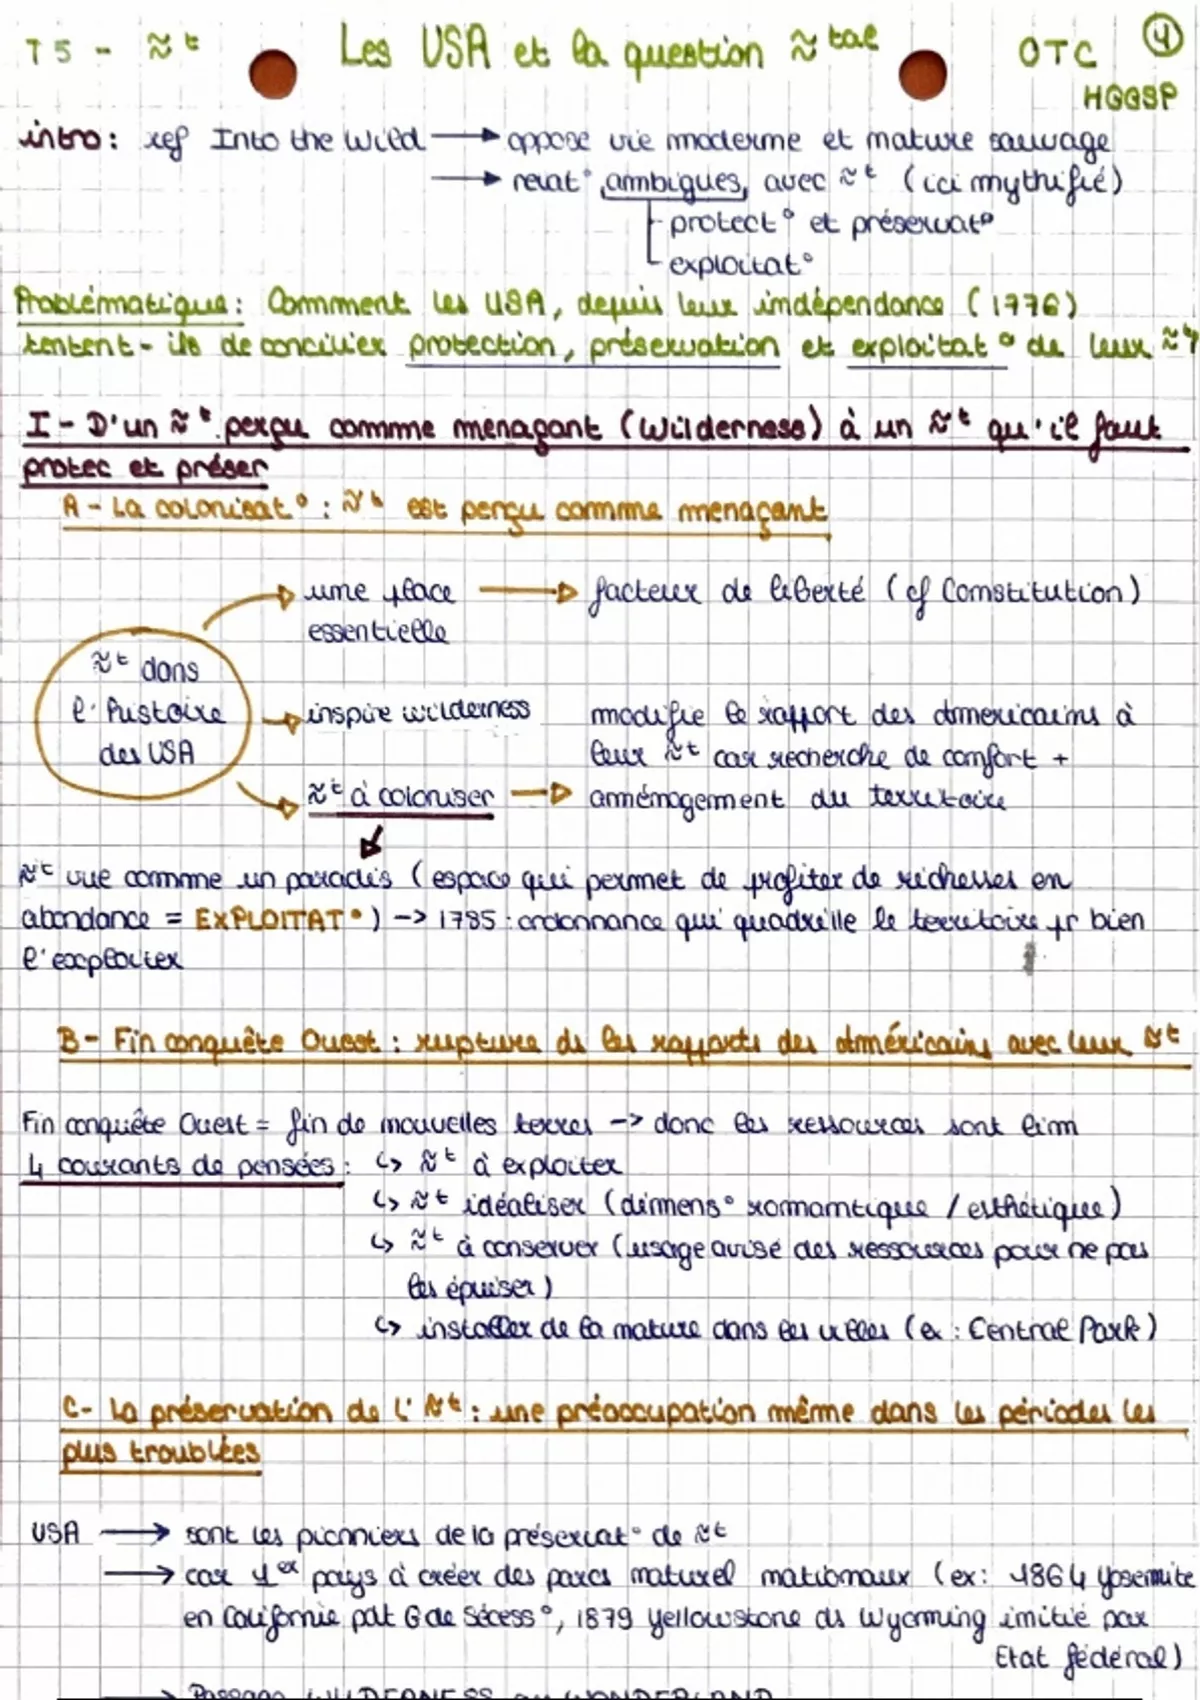 T5 - ≈t Les USA et la question ≈tal OTC 4
HGGSP
intro : ref Into the Wild → oppose vie moderne et nature sauvage
→ relat° ambigues, avec ≈t (ici mythifié)
protect° et préservat°
exploitat°
Problématique : Comment les USA, depuis leur indépendance (1776)
tentent-ils de concilier protection, préservation et exploitat° de leur ≈t ?
I - D'un ≈t perçu comme menaçant (Wilderness) à un ≈t qu'il faut
protec et préser
A - La colonisat° : ≈t est perçu comme menaçant
une place → facteur de liberté (cf Constitution)
essentielle
≈t dans
l'histoire
des USA
inspire wilderness modifie le rapport des Americains à
leur ≈t car recherche de confort +
≈t à coloniser → aménagement du territoire
≈t vue comme un paradis (espace qui permet de profiter de richesses en
abondance = EXPLOITAT°) -> 1785 : ordonnance qui quadrille le territoire pr bien
l'exploiter
B - Fin conquête Ouest : rupture ds les rapports des Américains avec leur ≈t
Fin conquête Ouest = fin de nouvelles terres -> donc les ressources sont lim
4 courants de pensées : ↳ ≈t à exploiter
↳ ≈t idéaliser (dimens° romantique / esthétique)
↳ ≈t à conserver (usage avisé des ressources pour ne pas
les épuiser)
↳ installer de la nature dans les villes (ex : Central Park)
C - La préservation de l'≈t : une préoccupation même dans les périodes les
plus troublées
USA → sont les pionniers de la préservat° de ≈t
→ car 1er pays à créer des parcs naturel nationaux (ex : 1864 Yosemite
en Californie pdt G de Sécess°, 1879 Yellowstone ds Wyoming imitié par
Etat fédéral)
→ Passage WILDERNESS au WONDERLAND